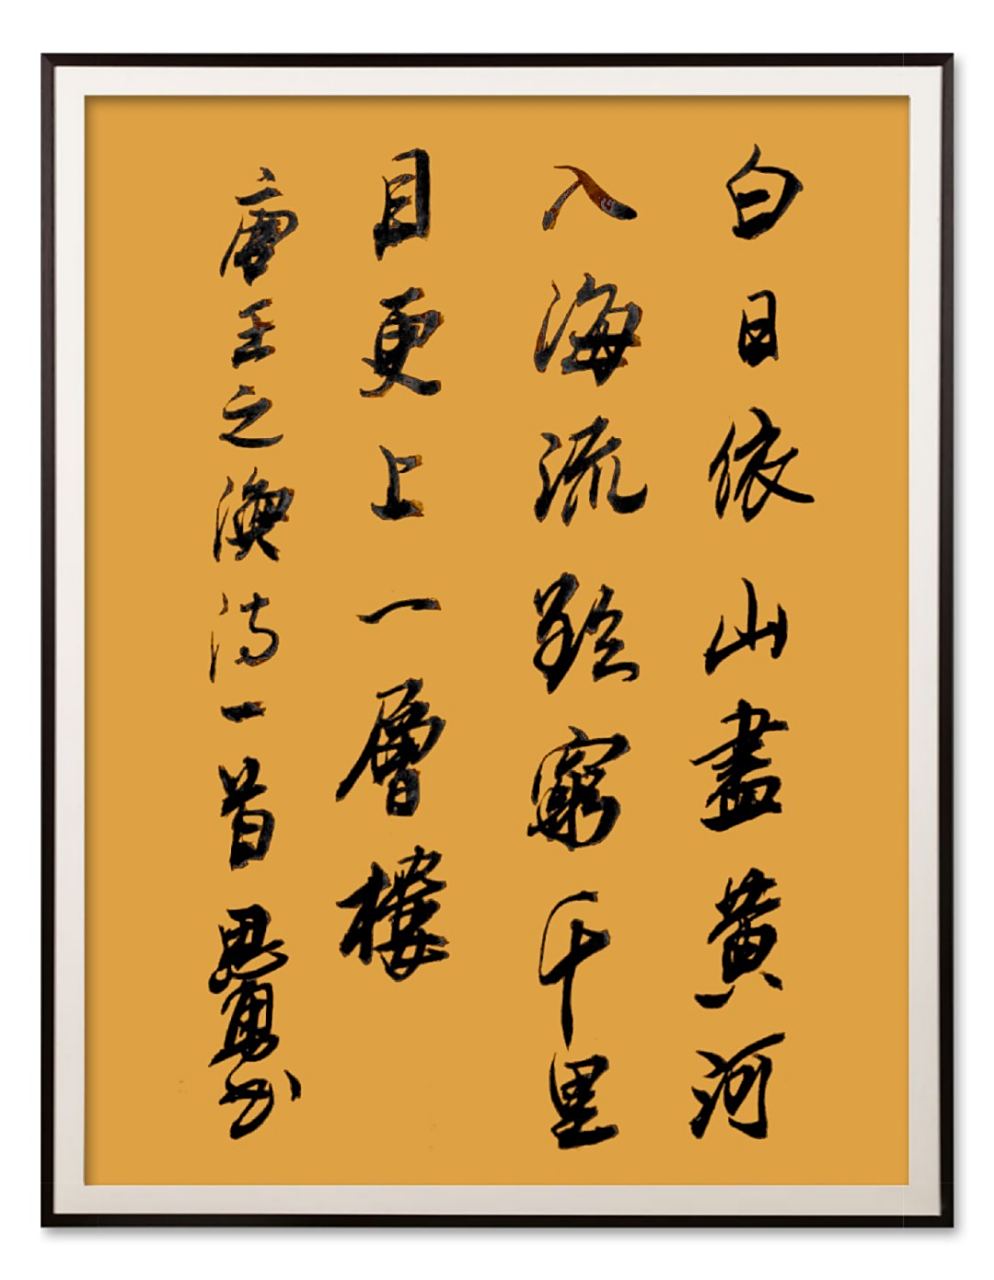 白日依山盡黄河
入海流欲窮千里
目更上一層樓
唐王之渙诗一首思书